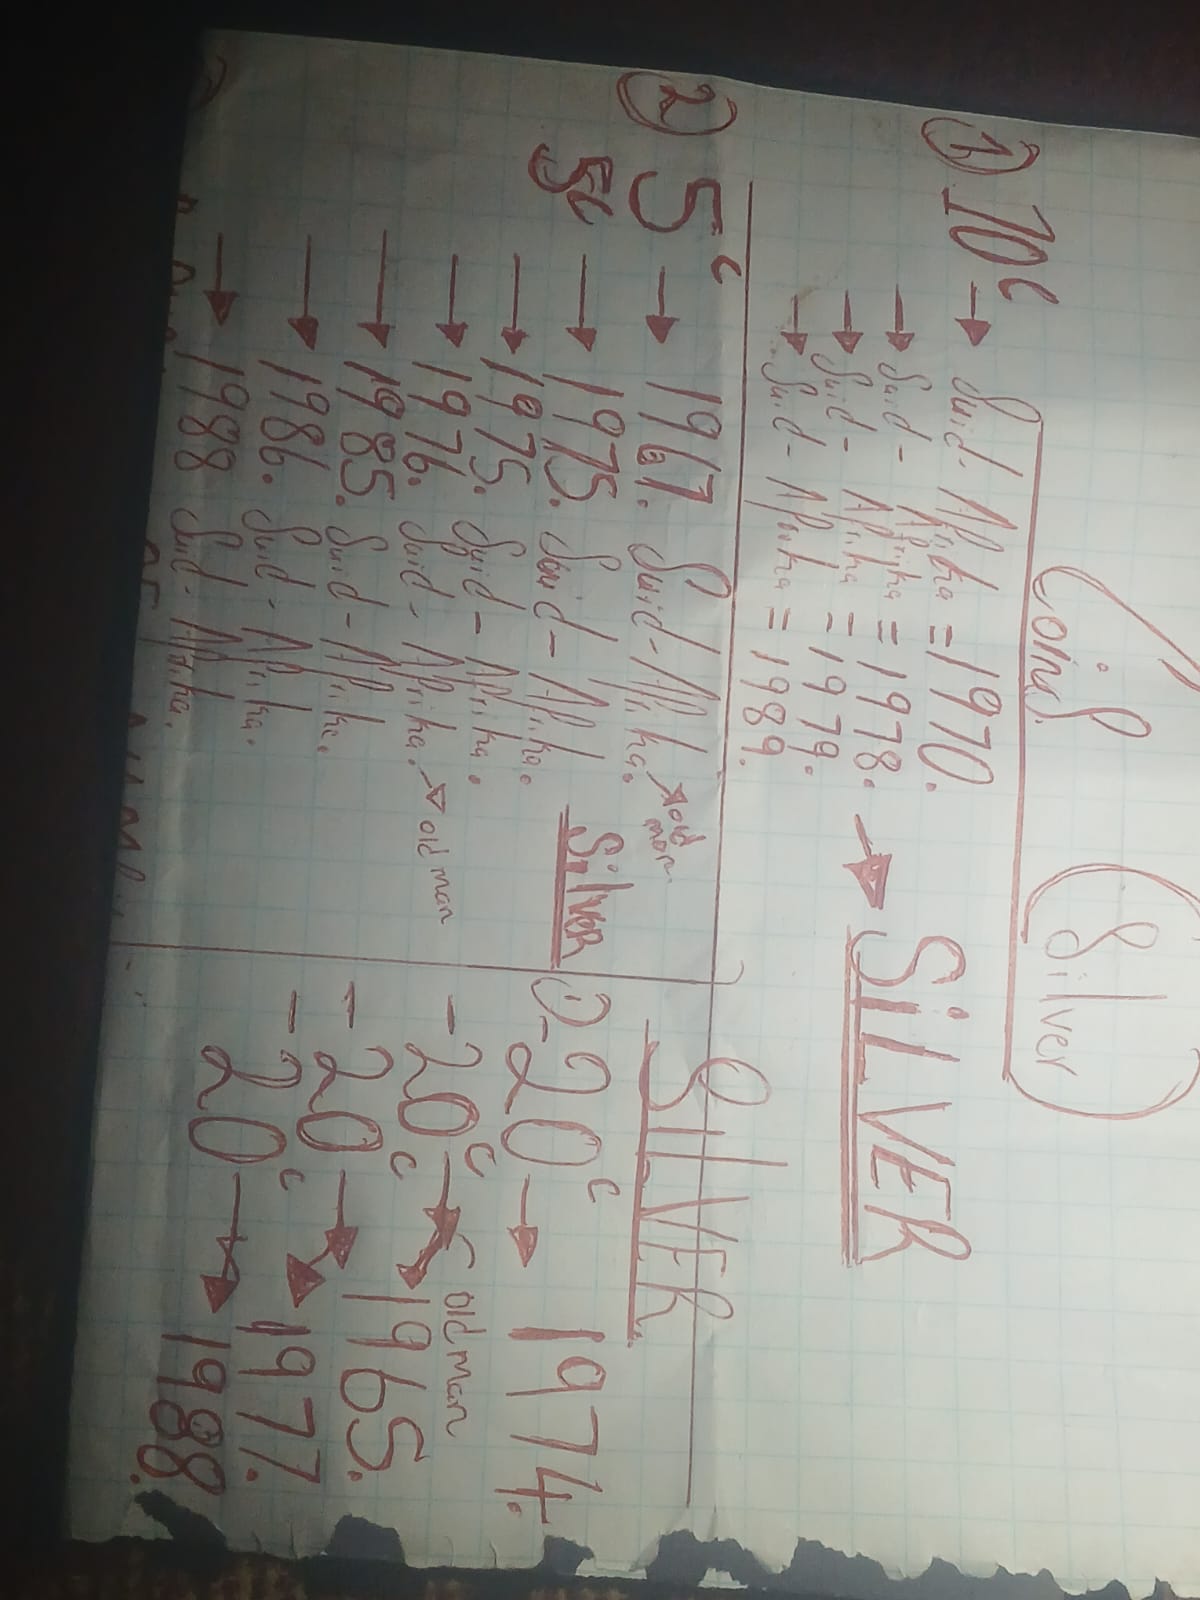 Coins (Silver)
1) 10c → Suid-Afrika = 1970.
→ Suid-Afrika = 1978. → SILVER
→ Suid-Afrika = 1979.
→ Suid-Afrika = 1989.
2) 5c → 1967. Suid-Afrika. → old man.
5c → 1975. Suid-Afrika. Silver
→ 1975. Suid-Afrika.
→ 1976. Suid-Afrika. → old man
→ 1985. Suid-Afrika.
→ 1986. Suid-Afrika.
→ 1988 Suid-Afrika.
SILVER
- 20c → 1974.
- 20c → old man
→ 1965.
- 20c →
- 20c → 1977.
→ 1988.